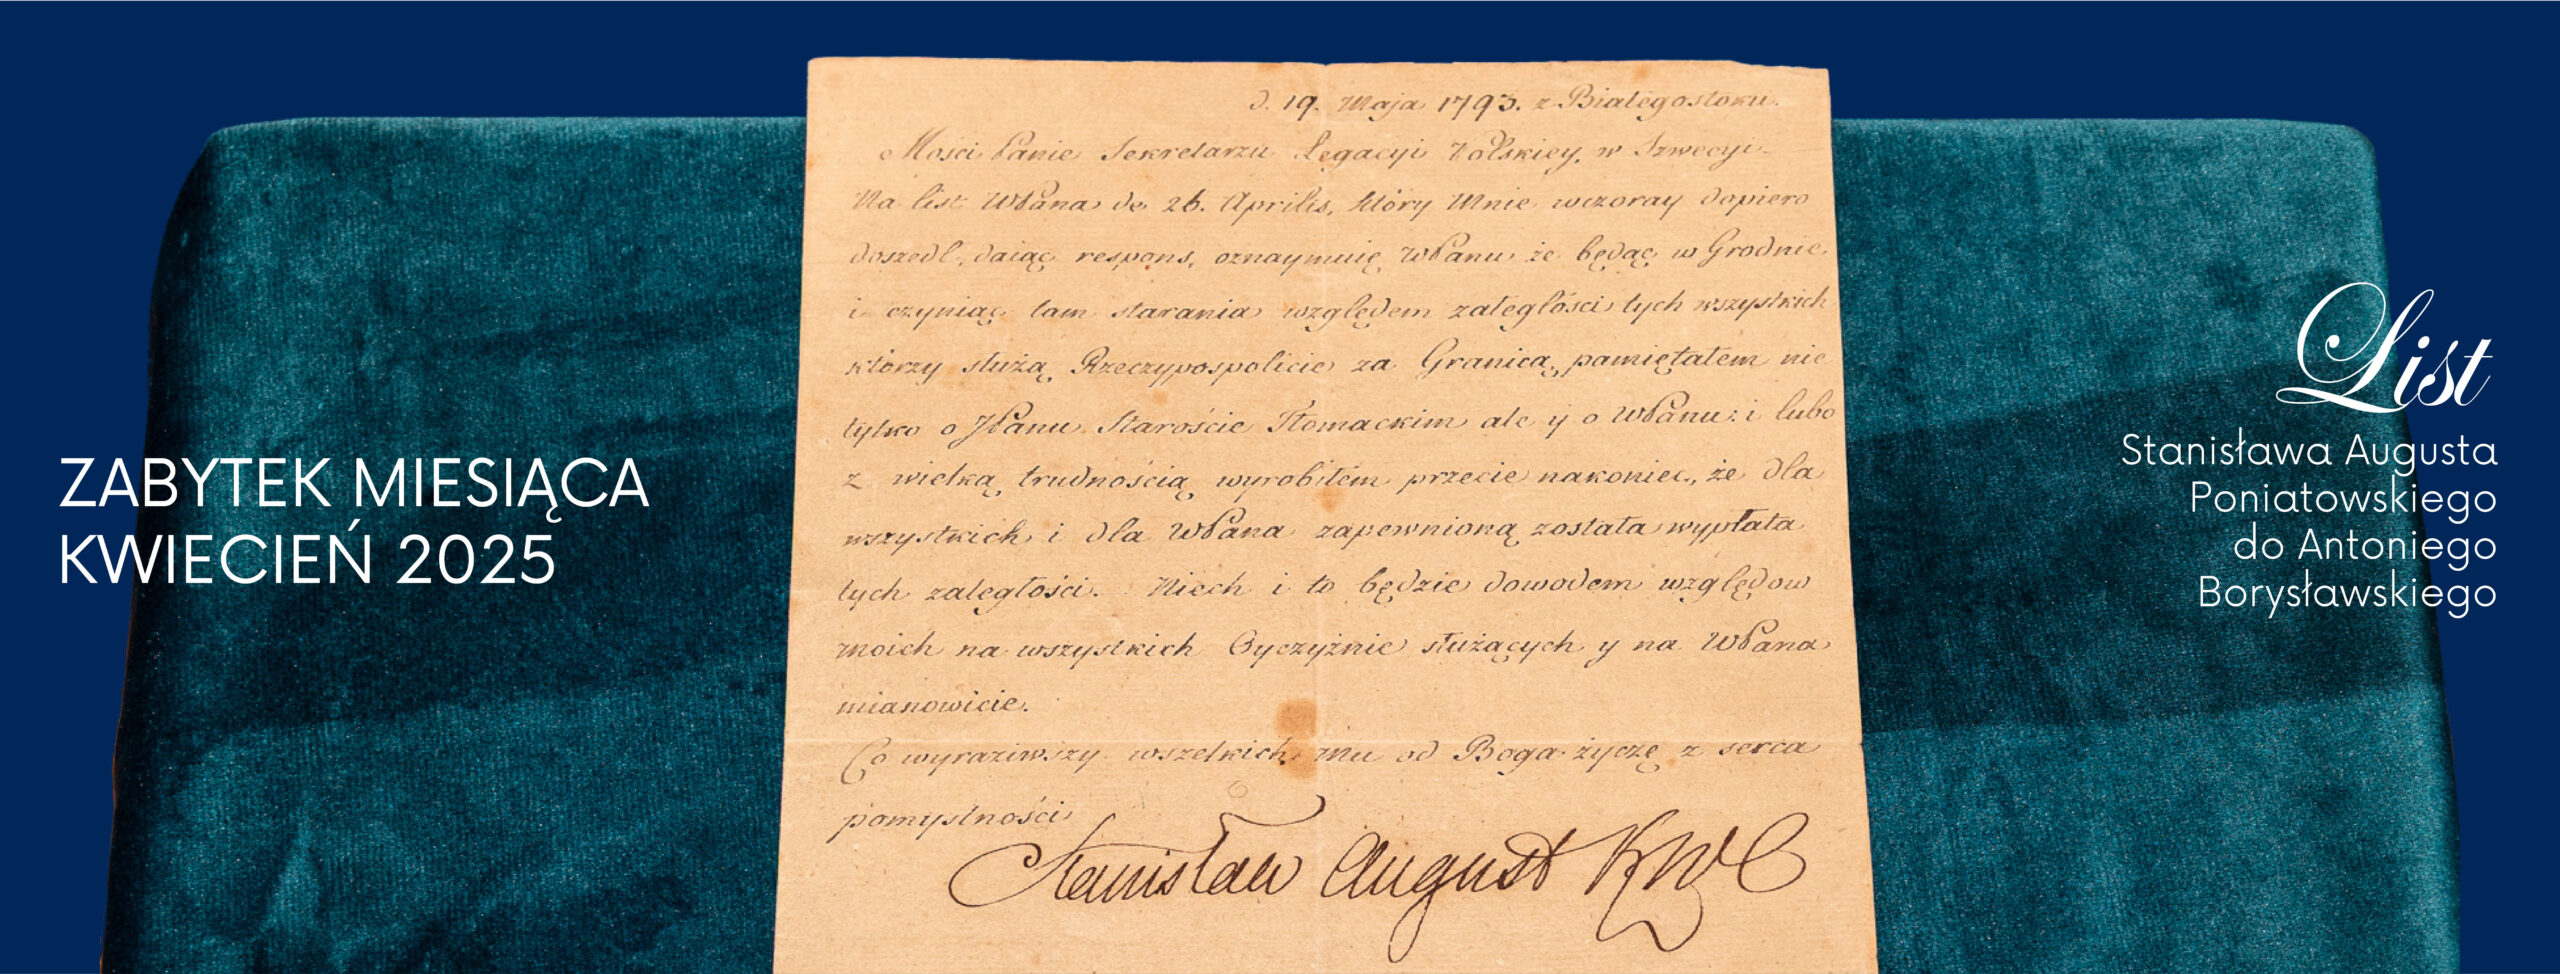 ZABYTEK MIESIĄCA
KWIECIEŃ 2025
d. 19. Maja 1793. z Białegostoku.
Mości Panie Sekretarzu Legacyi Polskiey, w Szwecyi
Na list WPana de 26. Aprilis, który Mnie wczoray dopiero
doszedł, daiąc respons, oznaymuię WPanu że będąc w Grodnie
i czyniąc tam starania względem zaległości tych wszystkich
którzy służą Rzeczypospolicie za Granicą, pamiętałem nie
tylko o JPanu Staroście Tłomackim ale y o WPanu: i lubo
z wielką trudnością wyrobiłem przecie nakoniec, że dla
wszystkich i dla WPana zapewnioną została wypłata
tych zaległości. Niech i to będzie dowodem względow
moich na wszystkich Oyczyźnie służących y na WPana
mianowicie.
Co wyraziwszy wszelkich mu od Boga życzę z serca
pomyslności
Stanisław August Król
List
Stanisława Augusta
Poniatowskiego
do Antoniego
Borysławskiego